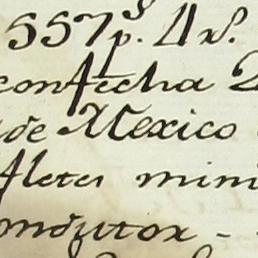 557p.s 4 rs.
con fecha 2
de Mexico
fletes mini
onductor -